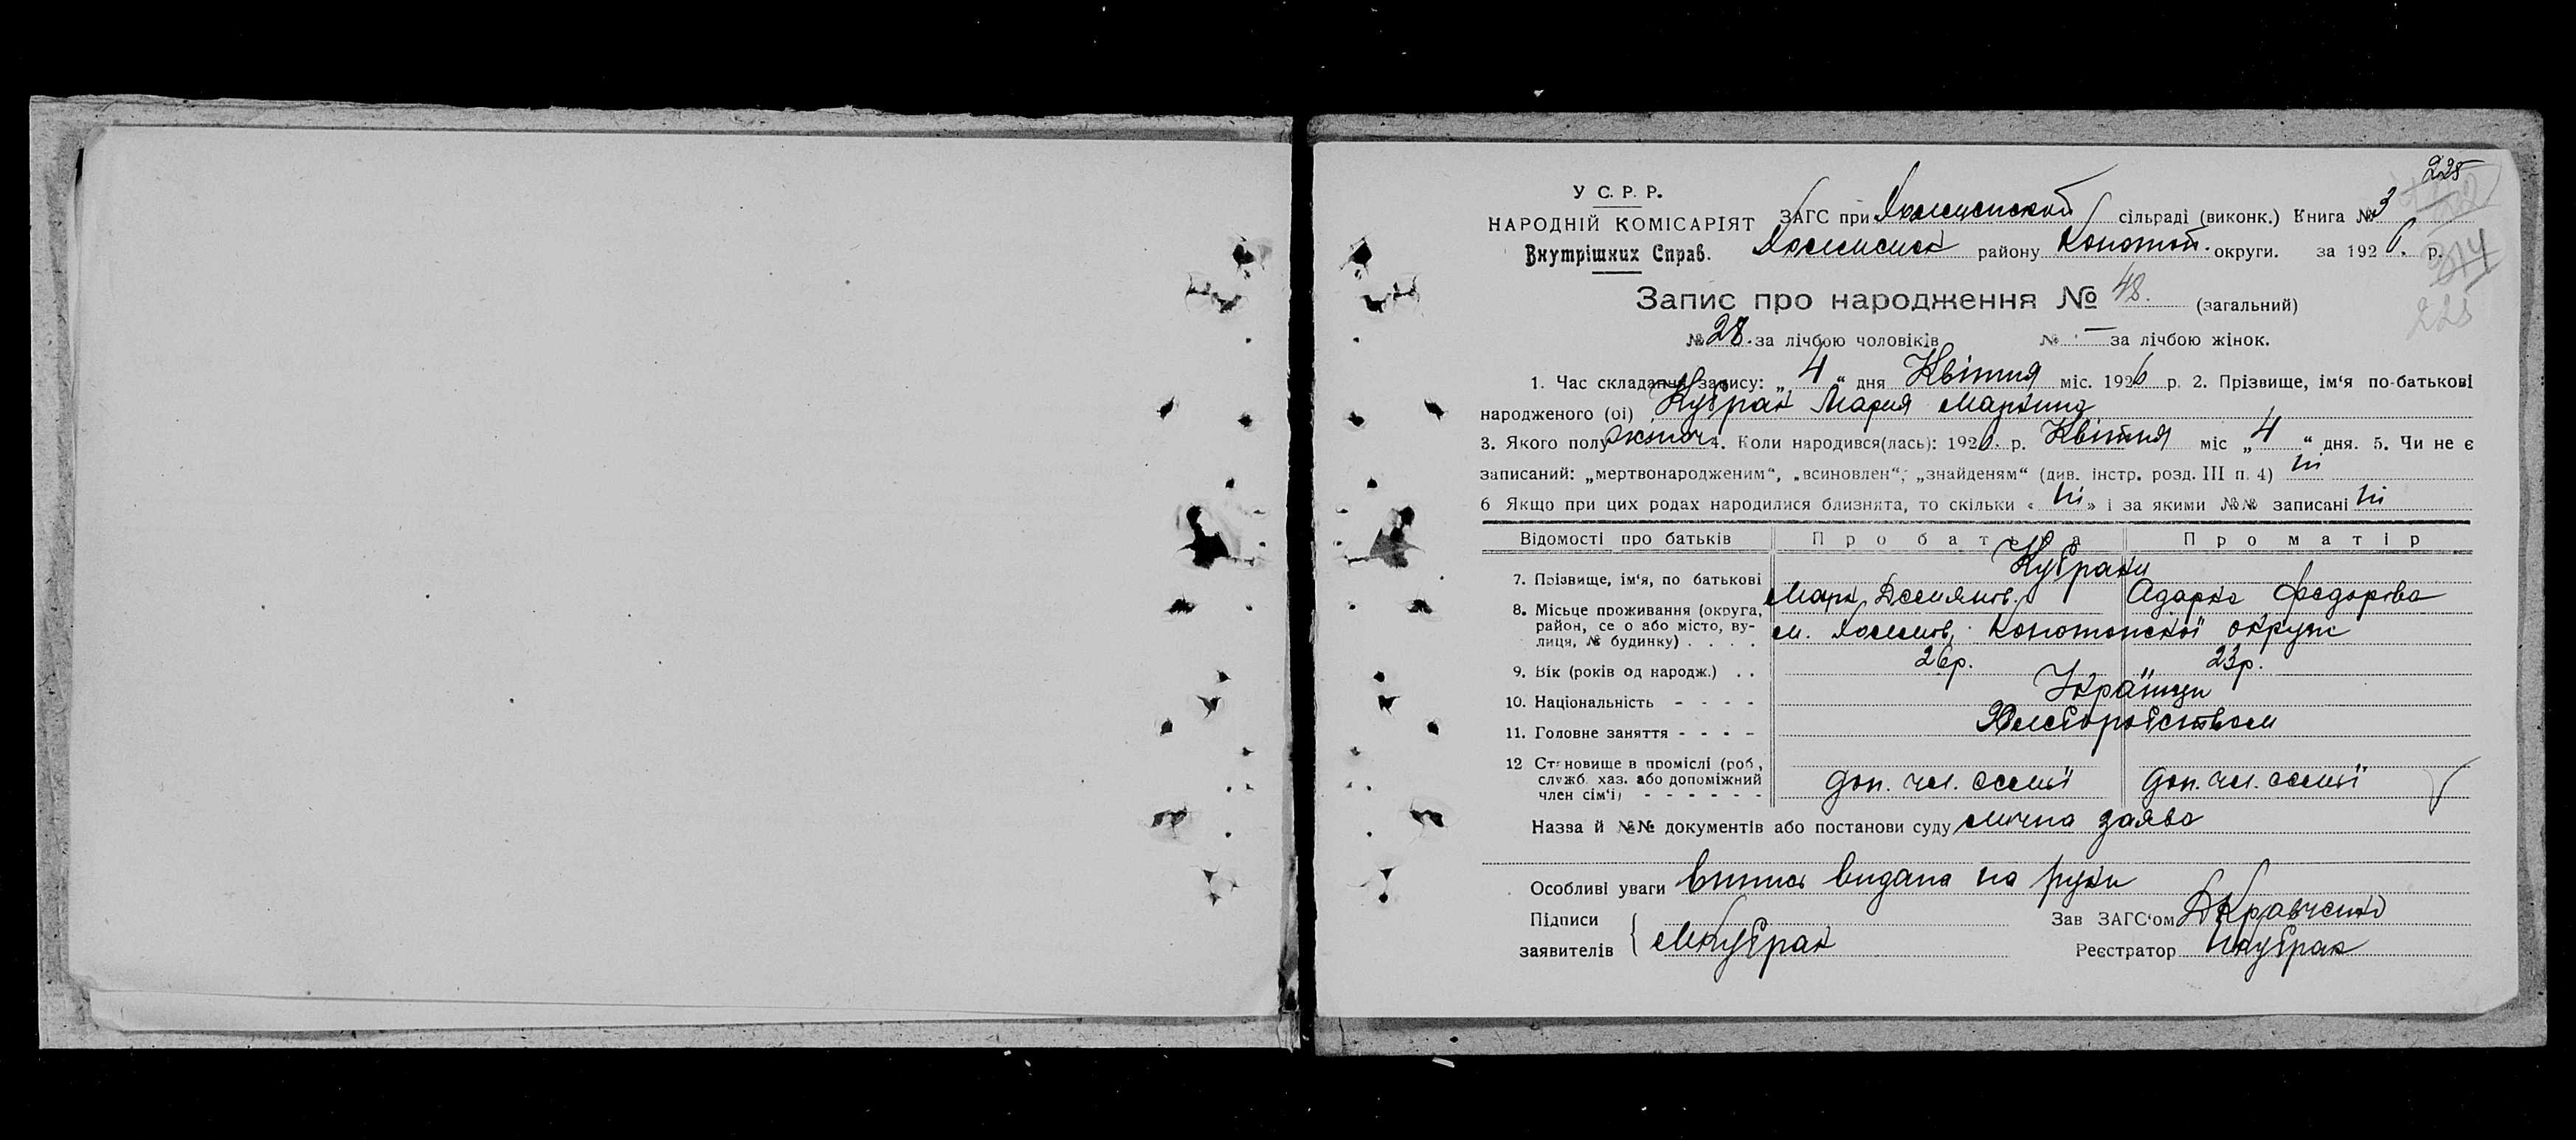 225
У С. Р. Р.
НАРОДНІЙ КОМІСАРІЯТ
Внутрішних Справ.
ЗАГС при сільраді (виконк.) Книга № 3
району Конотоп. округи. за 1926. р.
314
225
Запис про народження № 48. (загальний)
№ 28. за лічбою чоловіків № — за лічбою жінок.
1. Час складання запису: „ 4 “ дня Квітня міс. 1926 р. 2. Прізвище, ім‘я по-батькові
народженого (оі) Кубрак Мария Маркина
3. Якого полу жіноч 4. Коли народився(лась): 1926. р. Квітня міс „ 4 “ дня. 5. Чи не є
записаний: „мертвонародженим“, „всиновлен“; „знайденям“ (див. інстр. розд. III п. 4) ні
6 Якщо при цих родах народилися близнята, то скільки « ні » і за якими №№ записані ні
Відомості про батьків Про батька Про матір
7. Прізвище, ім‘я, по батькові Кубраки
Марк Демянов. Адарка Федорова
8. Місьце проживання (округа, район, се о або місто, ву-
лиця, № будинку) . . . . м. Конотопської округи
9. Вік (років од народж.) . . 26р. 23р.
10. Національність - - - - Українци
11. Головне заняття - - - - Хлеборобством
12 Становище в проміслі (роб,
служб. хаз. або допоміжний
член сім‘і) - - - - - - доп. чл. семьї доп. чл. семьї
Назва й №№ документів або постанови суду лична заява
Особливі уваги випись видана на руки
Підписи Зав ЗАГС‘ом ДКравченко
заявителів { МКубрак Реєстратор Кубрак